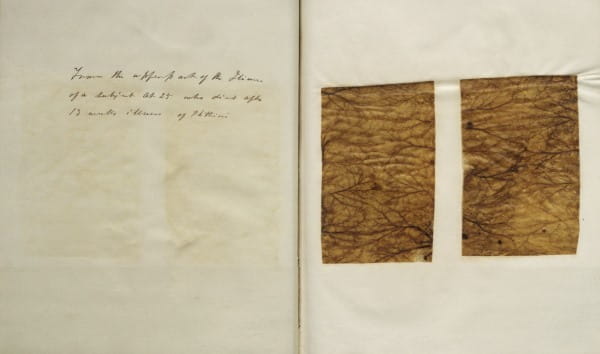 From the upper part of the Ilium
of a subject æt 25 who died after
13 weeks illness of Phthisis